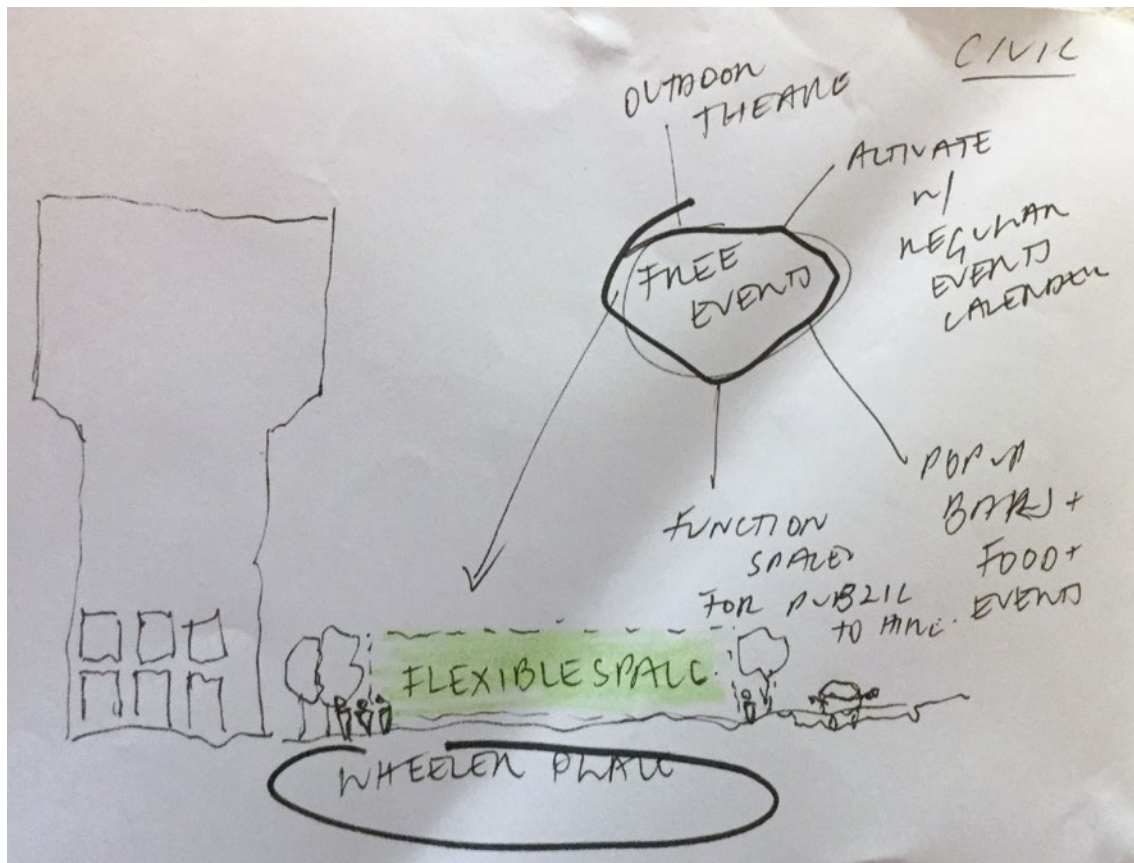 CIVIC
OUTDOOR
THEATRE
ACTIVATE
W/
REGULAR
EVENTS
CALENDER
FREE
EVENTS
POP UP
BARS +
FOOD +
EVENTS
FUNCTION
SPACES
FOR PUBLIC
TO HIRE.
FLEXIBLE SPACE
WHEELER PLACE